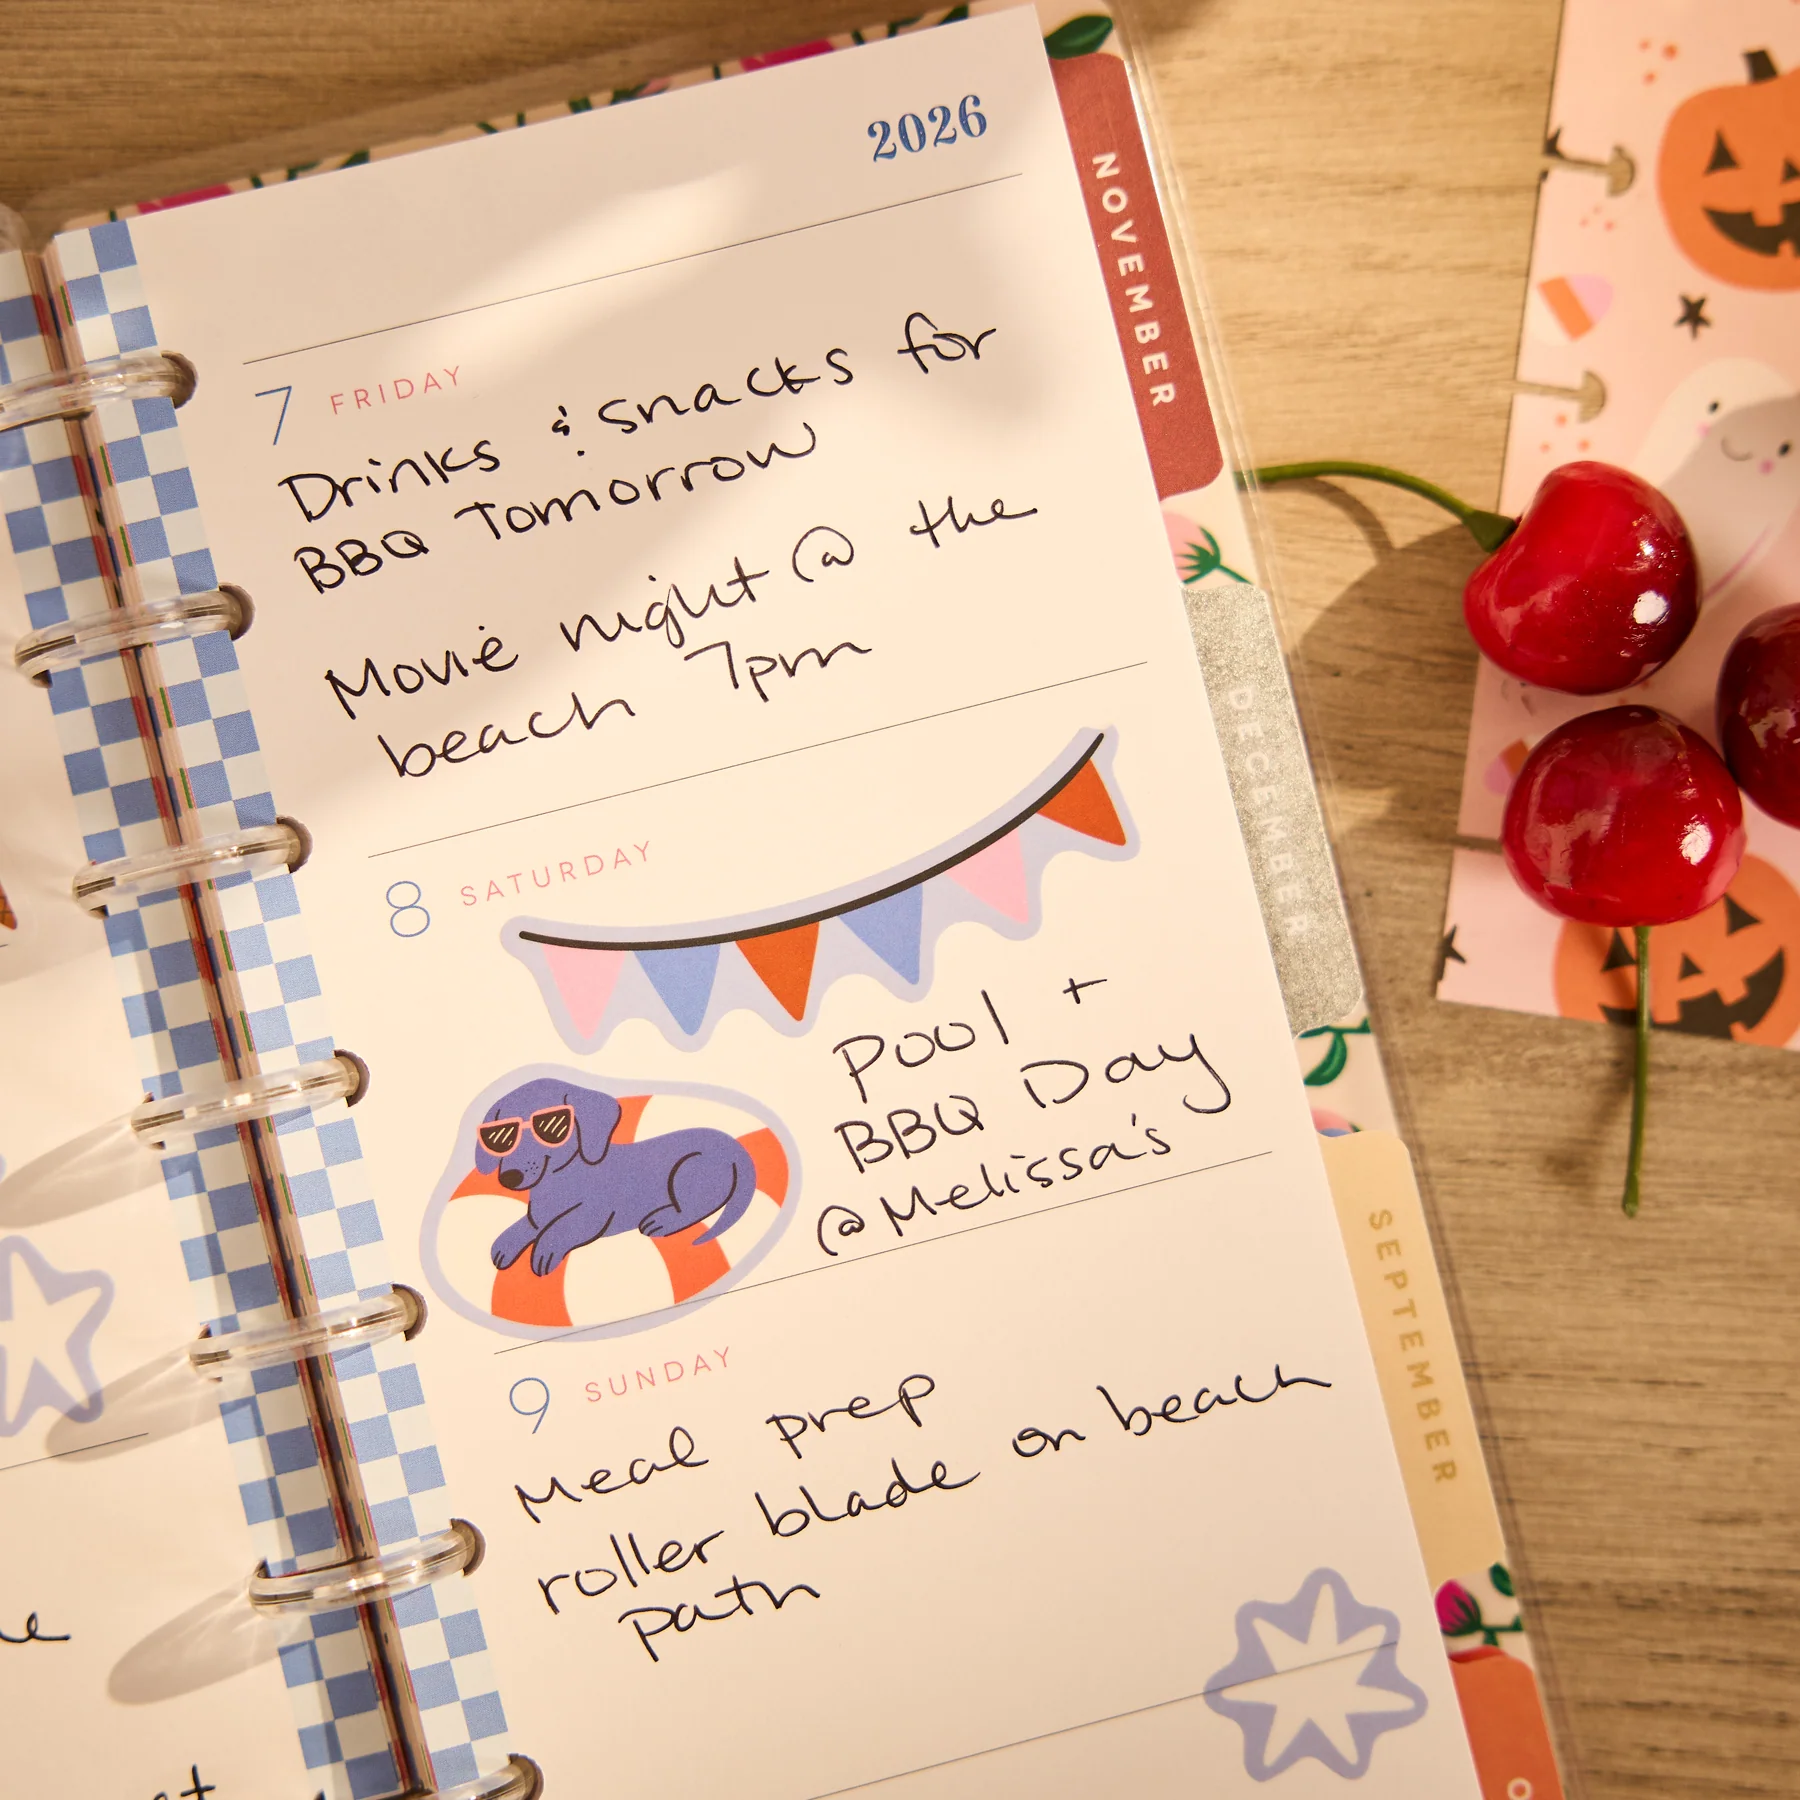 2026
7 FRIDAY
Drinks & snacks for
BBQ Tomorrow
Movie night @ the
beach 7pm
8 SATURDAY
Pool +
BBQ Day
@Melissa's
9 SUNDAY
Meal prep
roller blade on beach
path
NOVEMBER
DECEMBER
SEPTEMBER